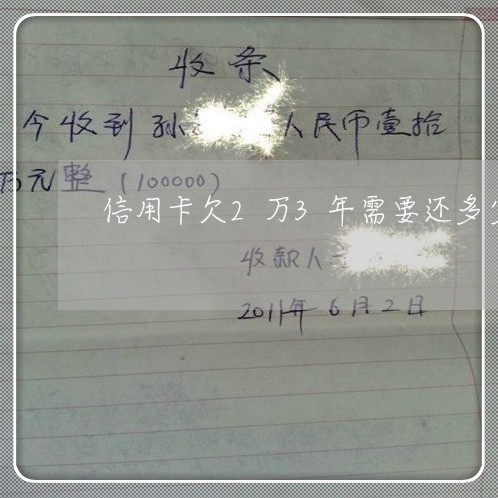 收条
今收到孙 人民币壹拾
万元整(100000)
信用卡欠2 万3 年需要还多
收款人
2011年6月2日